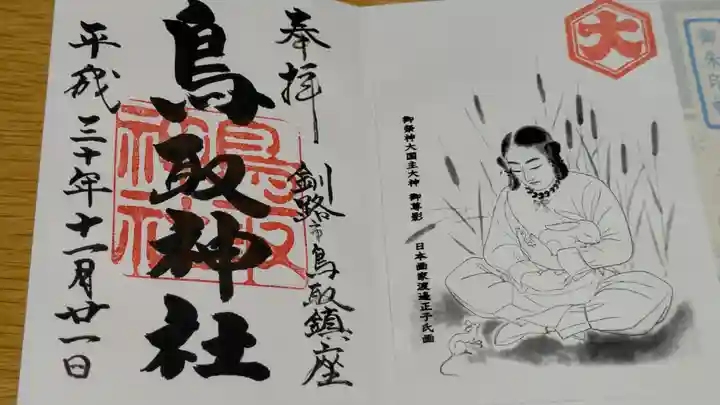 奉拝
釧路市鳥取鎮座
鳥取神社
鳥取神社
平成三十年十一月廿一日
大
御祭神大国主大神 御尊影
日本画家渡邉正子氏画
御朱印